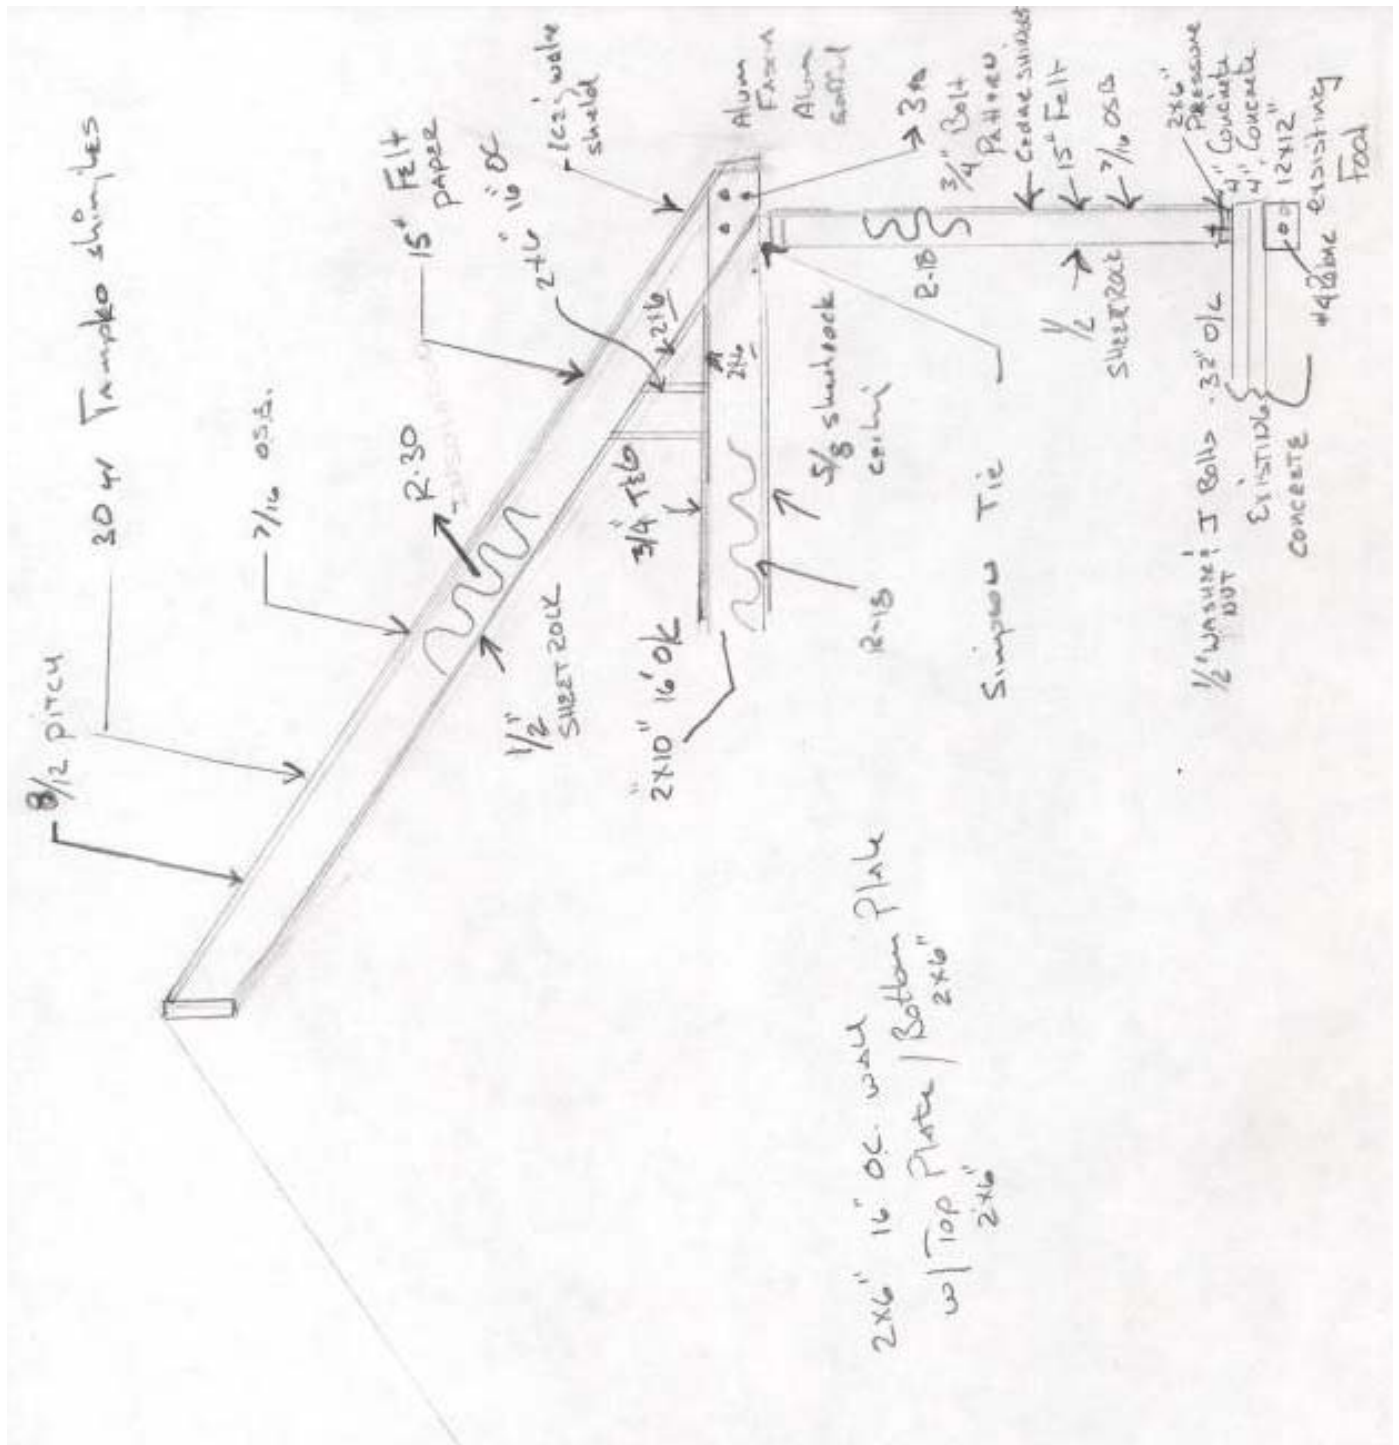 8/12 PITCH
30 yr Tampko shingles
7/16 O.S.B.
R-30
15# FELT
PAPER
2x6" 16" OC
ICE; water
shield
Alum
Fascia
Alum
soffit
3/4" Bolt
Pattern
Cedar shingles
15# Felt
7/16 OSB
2x6"
PRESSURE
4" Concrete
4" Concrete
12x12"
existing
Foot
1/2"
SHEETROCK
3/4" T&G
2x6
2x6
"2x10" 16" O/C
5/8 sheetrock
ceiling
R-18
R-18
1/2
SHEETROCK
Simpson Tie
1/2" WASHER; J Bolts 32" O/C
NUT
EXISTING
CONCRETE
2x6" 16" OC. wall
w/ Top Plate / Bottom Plate
2x6"
2x6"